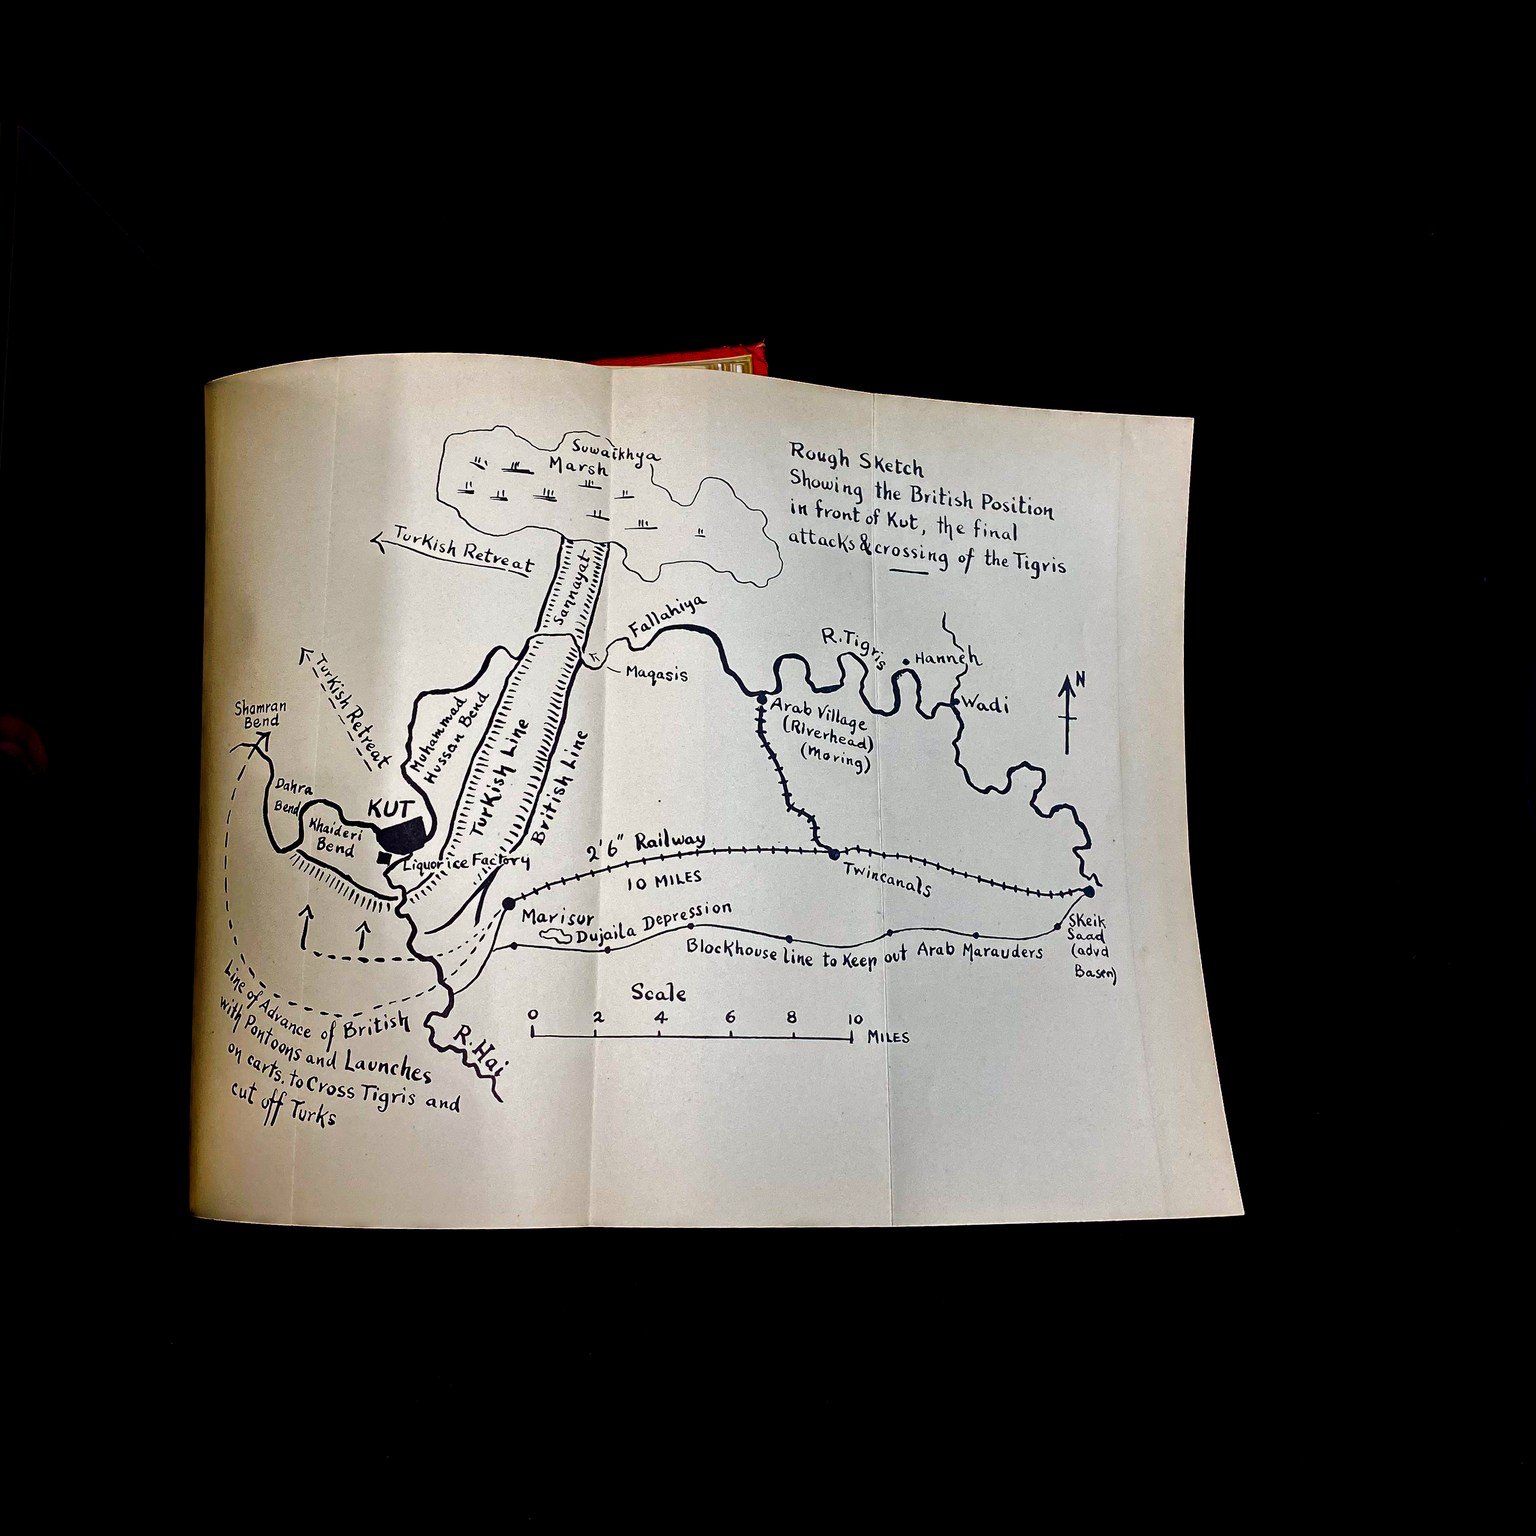 Rough Sketch
Showing the British Position
in front of Kut, the final
attacks & crossing of the Tigris
Suwaikhya
Marsh
Turkish Retreat
Sannayat
Fallahiya
Maqasis
R. Tigris
Hanneh
Wadi
N
Arab Village
(Riverhead)
(Moring)
Turkish Retreat
Shamran
Bend
Muhammad
Hussan Bend
Turkish Line
British Line
Dahra
Bend
KUT
Khaideri
Bend
Liquorice Factory
2'6" Railway
10 MILES
Twincanals
Marisur
Dujaila Depression
Blockhouse line to Keep out Arab Marauders
Skeik
Saad
(advd
Basen)
Line of Advance of British
with Pontoons and Launches
on carts. to Cross Tigris and
cut off Turks
R. Hai
Scale
0 2 4 6 8 10
MILES